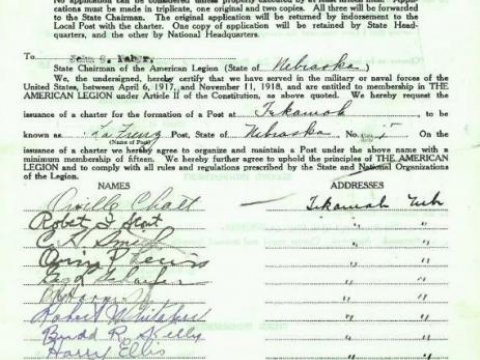 No application can be considered unless properly executed by at least fifteen men. Appli-
cations must be made in triplicate, one original and two copies. All three will be forwarded
to the State Chairman. The original application will be returned by indorsement to the
Local Post with charter. One copy of application will be retained by State Head-
quarters, and the other by National Headquarters.
To John G.
State Chairman of the American Legion (State of Nebraska)
We, the undersigned, hereby certify that we have served in the military or naval forces of the
United States, between April 6, 1917, and November 11, 1918, and are entitled to membership in THE
AMERICAN LEGION under Article II of the Constitution, as above quoted. We hereby request the
issuance of a charter for the formation of a Post at Tekamah to be
known as Post, State of Nebraska No. On the
(Name of Post)
issuance of a charter we hereby agree to organize and maintain a Post under the above name with a
minimum membership of fifteen. We hereby further agree to uphold the principles of THE AMERICAN
LEGION and to comply with all rules and regulations prescribed by the State and National Organizations
of the Legion.
NAMES ADDRESSES
Orville Chatt Tekamah Neb
Robert " "
" "
Lewis " "
" "
" "
Robert Whitaker " "
Budd R. Skelly " "
Harry Ellis " "